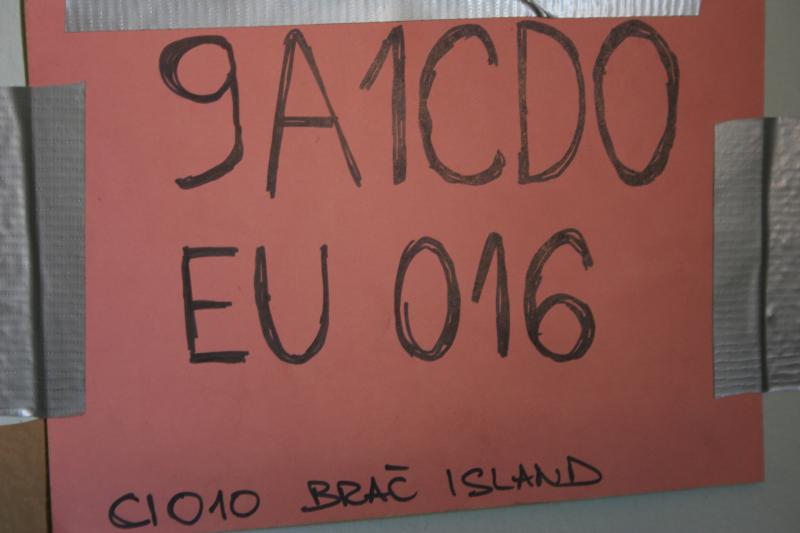 9A1CDO
EU 016
CI010 BRAČ ISLAND